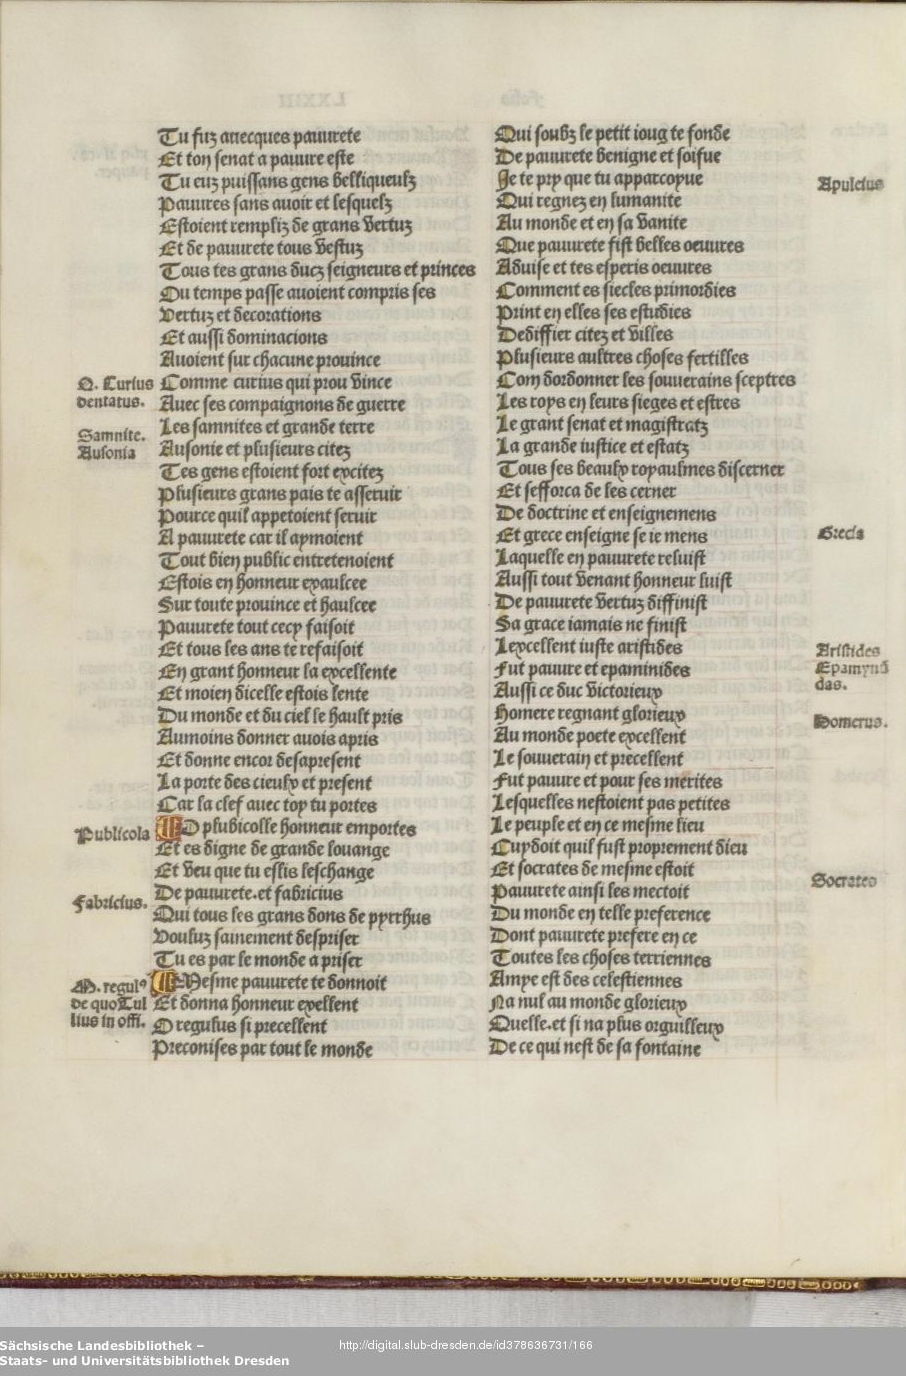 Tu fuz auecques pauurete
Et ton senat a pauure este
Tu euz puissans gens belliqueulz
Pauures sans auoir et lesquelz
Estoient rempliz de grans vertuz
Et de pauurete tous vestuz
Tous tes grans ducz seigneurs et princes
Ou temps passe auoient compris ses
Vertuz et decorations
Et aussi dominacions
Auoient sur chacune prouince
Q. Curius dentatus.
Comme curius qui prou vince
Auec ses compaignons de guerre
Samnite.
Ausonia
Les samnites et grande terre
Ausonie et plusieurs citez
Tes gens estoient fort excitez
Plusieurs grans pais te asseruir
Pource quil appetoient seruir
A pauurete car il aymoient
Tout bien public entretenoient
Estois en honneur exaulcee
Sur toute prouince et haulcee
Pauurete tout cecy faisoit
Et tous les ans te refaisoit
En grant honneur la excellente
Et moien dicelle estois lente
Du monde et du ciel le hault pris
Aumoins donner auois apris
Et donne encor desapresent
La porte des cieulx et present
Car la clef auec toy tu portes
Publicola
O plubicolle honneur emportes
Et es digne de grande louange
Et veu que tu eslis leschange
Fabricius.
De pauurete.et fabricius
Qui tous les grans dons de pyrrhus
Vouluz sainement despriser
Tu es par le monde a priser
M. regul⁹
de quo Tul
lius in offi.
Mesme pauurete te donnoit
Et donna honneur exellent
O regulus si precellent
Preconises par tout le monde
Qui soubz le petit ioug te fonde
De pauurete benigne et soifue
Apuleius
Je te pry que tu apparcoyue
Qui regnez en lumanite
Au monde et en sa vanite
Que pauurete fist belles oeuures
Aduise et tes esperis oeuures
Comment es siecles primordies
Print en elles ses estudies
Dediffier citez et villes
Plusieurs aultres choses fertilles
Com dordonner les souuerains sceptres
Les roys en leurs sieges et estres
Le grant senat et magistratz
La grande iustice et estatz
Tous ses beaulx royaulmes discerner
Et sefforca de les cerner
De doctrine et enseignemens
Grecia
Et grece enseigne se ie mens
Laquelle en pauurete reluist
Aussi tout venant honneur luist
De pauurete vertuz diffinist
Sa grace iamais ne finist
Aristides
Epamynō
das.
Lexcellent iuste aristides
Fut pauure et epaminides
Aussi ce duc victorieux
Homerus.
Homere regnant glorieux
Au monde poete excellent
Le souuerain et precellent
Fut pauure et pour ses merites
Lesquelles nestoient pas petites
Le peuple et en ce mesme lieu
Cuydoit quil fust proprement dieu
Socrates
Et socrates de mesme estoit
Pauurete ainsi les mectoit
Du monde en telle preference
Dont pauurete prefere en ce
Toutes les choses terriennes
Amye est des celestiennes
Na nul au monde glorieux
Quelle.et si na plus orguilleux
De ce qui nest de sa fontaine
Sächsische Landesbibliothek –
Staats- und Universitätsbibliothek Dresden
http://digital.slub-dresden.de/id378636731/166